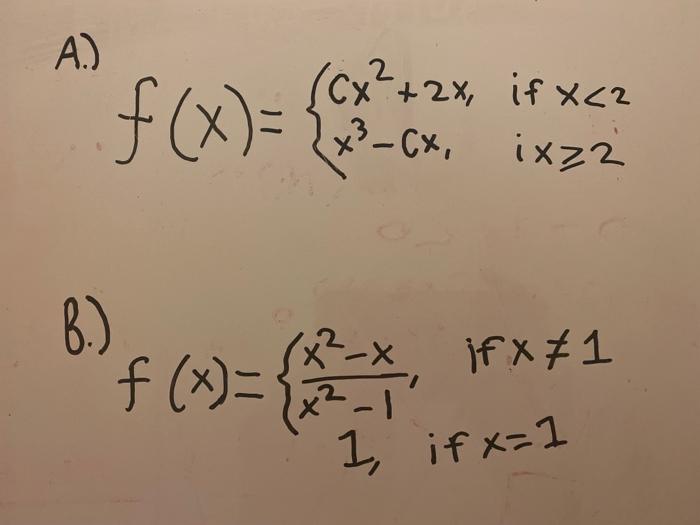 A.)
f(x) = { Cx² + 2x, if x < 2
x³ - Cx, i x ≥ 2
B.)
f(x) = { x² - x / x² - 1, if x ≠ 1
1, if x = 1